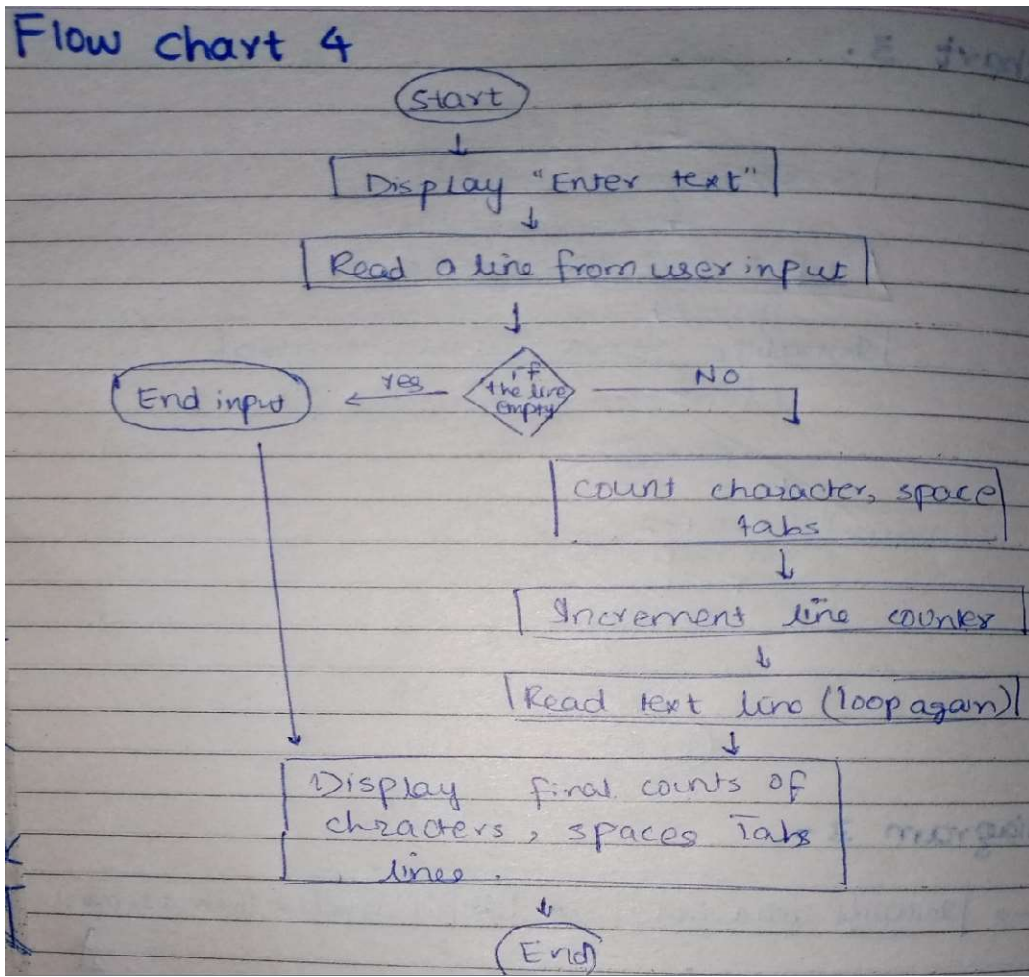 Flow chart 4
Start
Display "Enter text"
Read a line from user input
if
the line
empty
Yes
NO
End input
count character, space
tabs
Increment line counter
Read text line (loop again)
Display final counts of
chracters, spaces Tabs
lines.
End